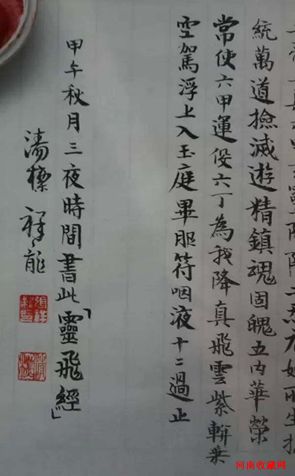 統萬道撿滅遊精鎮魂固魄五内華榮
常使六甲運役六丁為我降真飛雲紫軿乘
空駕浮上入玉庭畢服符咽液十二過止
甲午秋月三夜時間書此「靈飛經」
湯 祥龍
河南收藏网